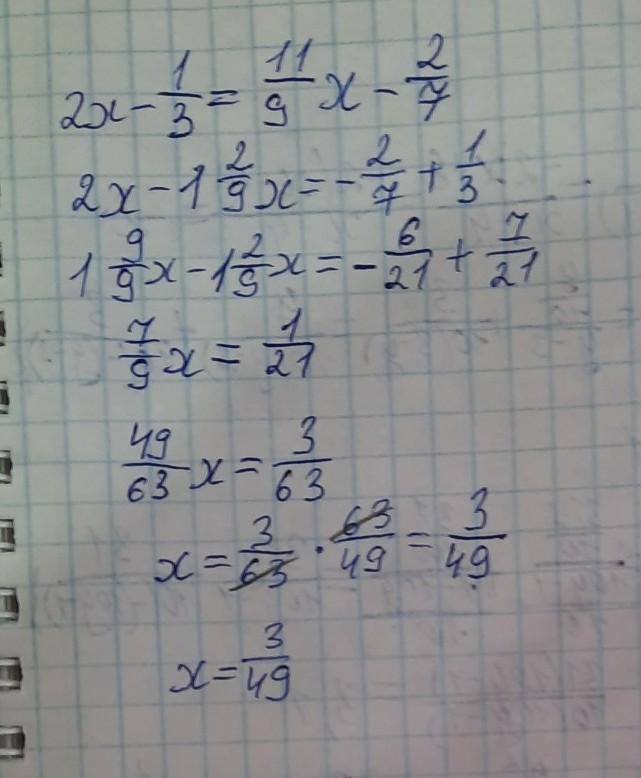 2x - 1/3 = 11/9 x - 2/7
2x - 1 2/9 x = - 2/7 + 1/3
1 9/9 x - 1 2/9 x = - 6/21 + 7/21
7/9 x = 1/21
49/63 x = 3/63
x = 3/63 · 63/49 = 3/49
x = 3/49